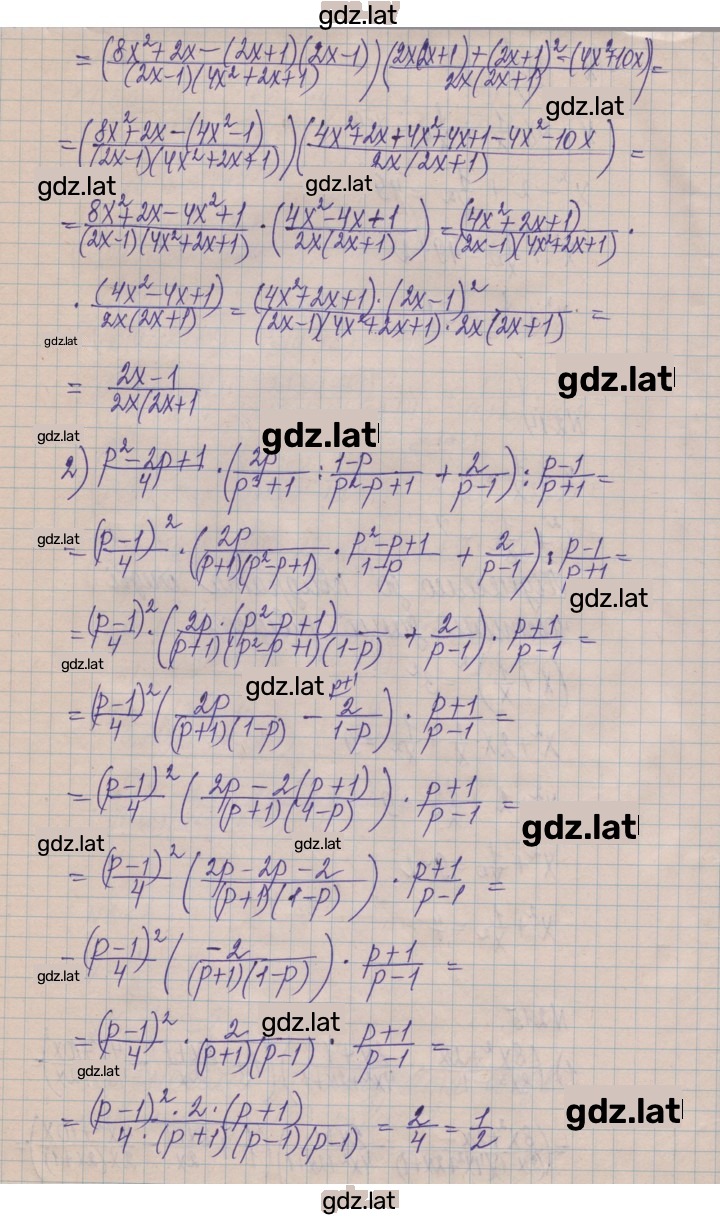 gdz.lat
= (8x²+2x-(2x+1)(2x-1) / (2x-1)(4x²+2x+1)) (2x(2x+1)+(2x+1)²-(4x²+10x) / 2x(2x+1)) =
gdz.lat
= (8x²+2x-(4x²-1) / (2x-1)(4x²+2x+1)) (4x²+2x+4x²+4x+1-4x²-10x / 2x(2x+1)) =
gdz.lat gdz.lat
= 8x²+2x-4x²+1 / (2x-1)(4x²+2x+1) · (4x²-4x+1 / 2x(2x+1)) = (4x²+2x+1) / (2x-1)(4x²+2x+1) ·
· (4x²-4x+1) / 2x(2x+1) = (4x²+2x+1)·(2x-1)² / (2x-1)(4x²+2x+1)·2x(2x+1) =
gdz.lat
= 2x-1 / 2x(2x+1
gdz.lat
gdz.lat gdz.lat
2) p²-2p+1 / 4 · (2p / p³+1 : 1-p / p²-p+1 + 2 / p-1) : p-1 / p+1 =
gdz.lat
= (p-1)² / 4 · (2p / (p+1)(p²-p+1) · p²-p+1 / 1-p + 2 / p-1) : p-1 / p+1 =
gdz.lat
= (p-1)² / 4 · (2p·(p²-p+1) / (p+1)(p²-p+1)(1-p) + 2 / p-1) · p+1 / p-1 =
gdz.lat
gdz.lat p+1
= (p-1)² / 4 (2p / (p+1)(1-p) - 2 / 1-p) · p+1 / p-1 =
= (p-1)² / 4 (2p-2(p+1) / (p+1)(1-p)) · p+1 / p-1 =
gdz.lat
gdz.lat gdz.lat
= (p-1)² / 4 (2p-2p-2 / (p+1)(1-p)) · p+1 / p-1 =
- (p-1)² / 4 (-2 / (p+1)(1-p)) · p+1 / p-1 =
gdz.lat
= (p-1)² / 4 · 2 / (p+1)(p-1) · p+1 / p-1 =
gdz.lat
gdz.lat
= (p-1)²·2·(p+1) / 4·(p+1)(p-1)(p-1) = 2 / 4 = 1 / 2
gdz.lat
gdz.lat